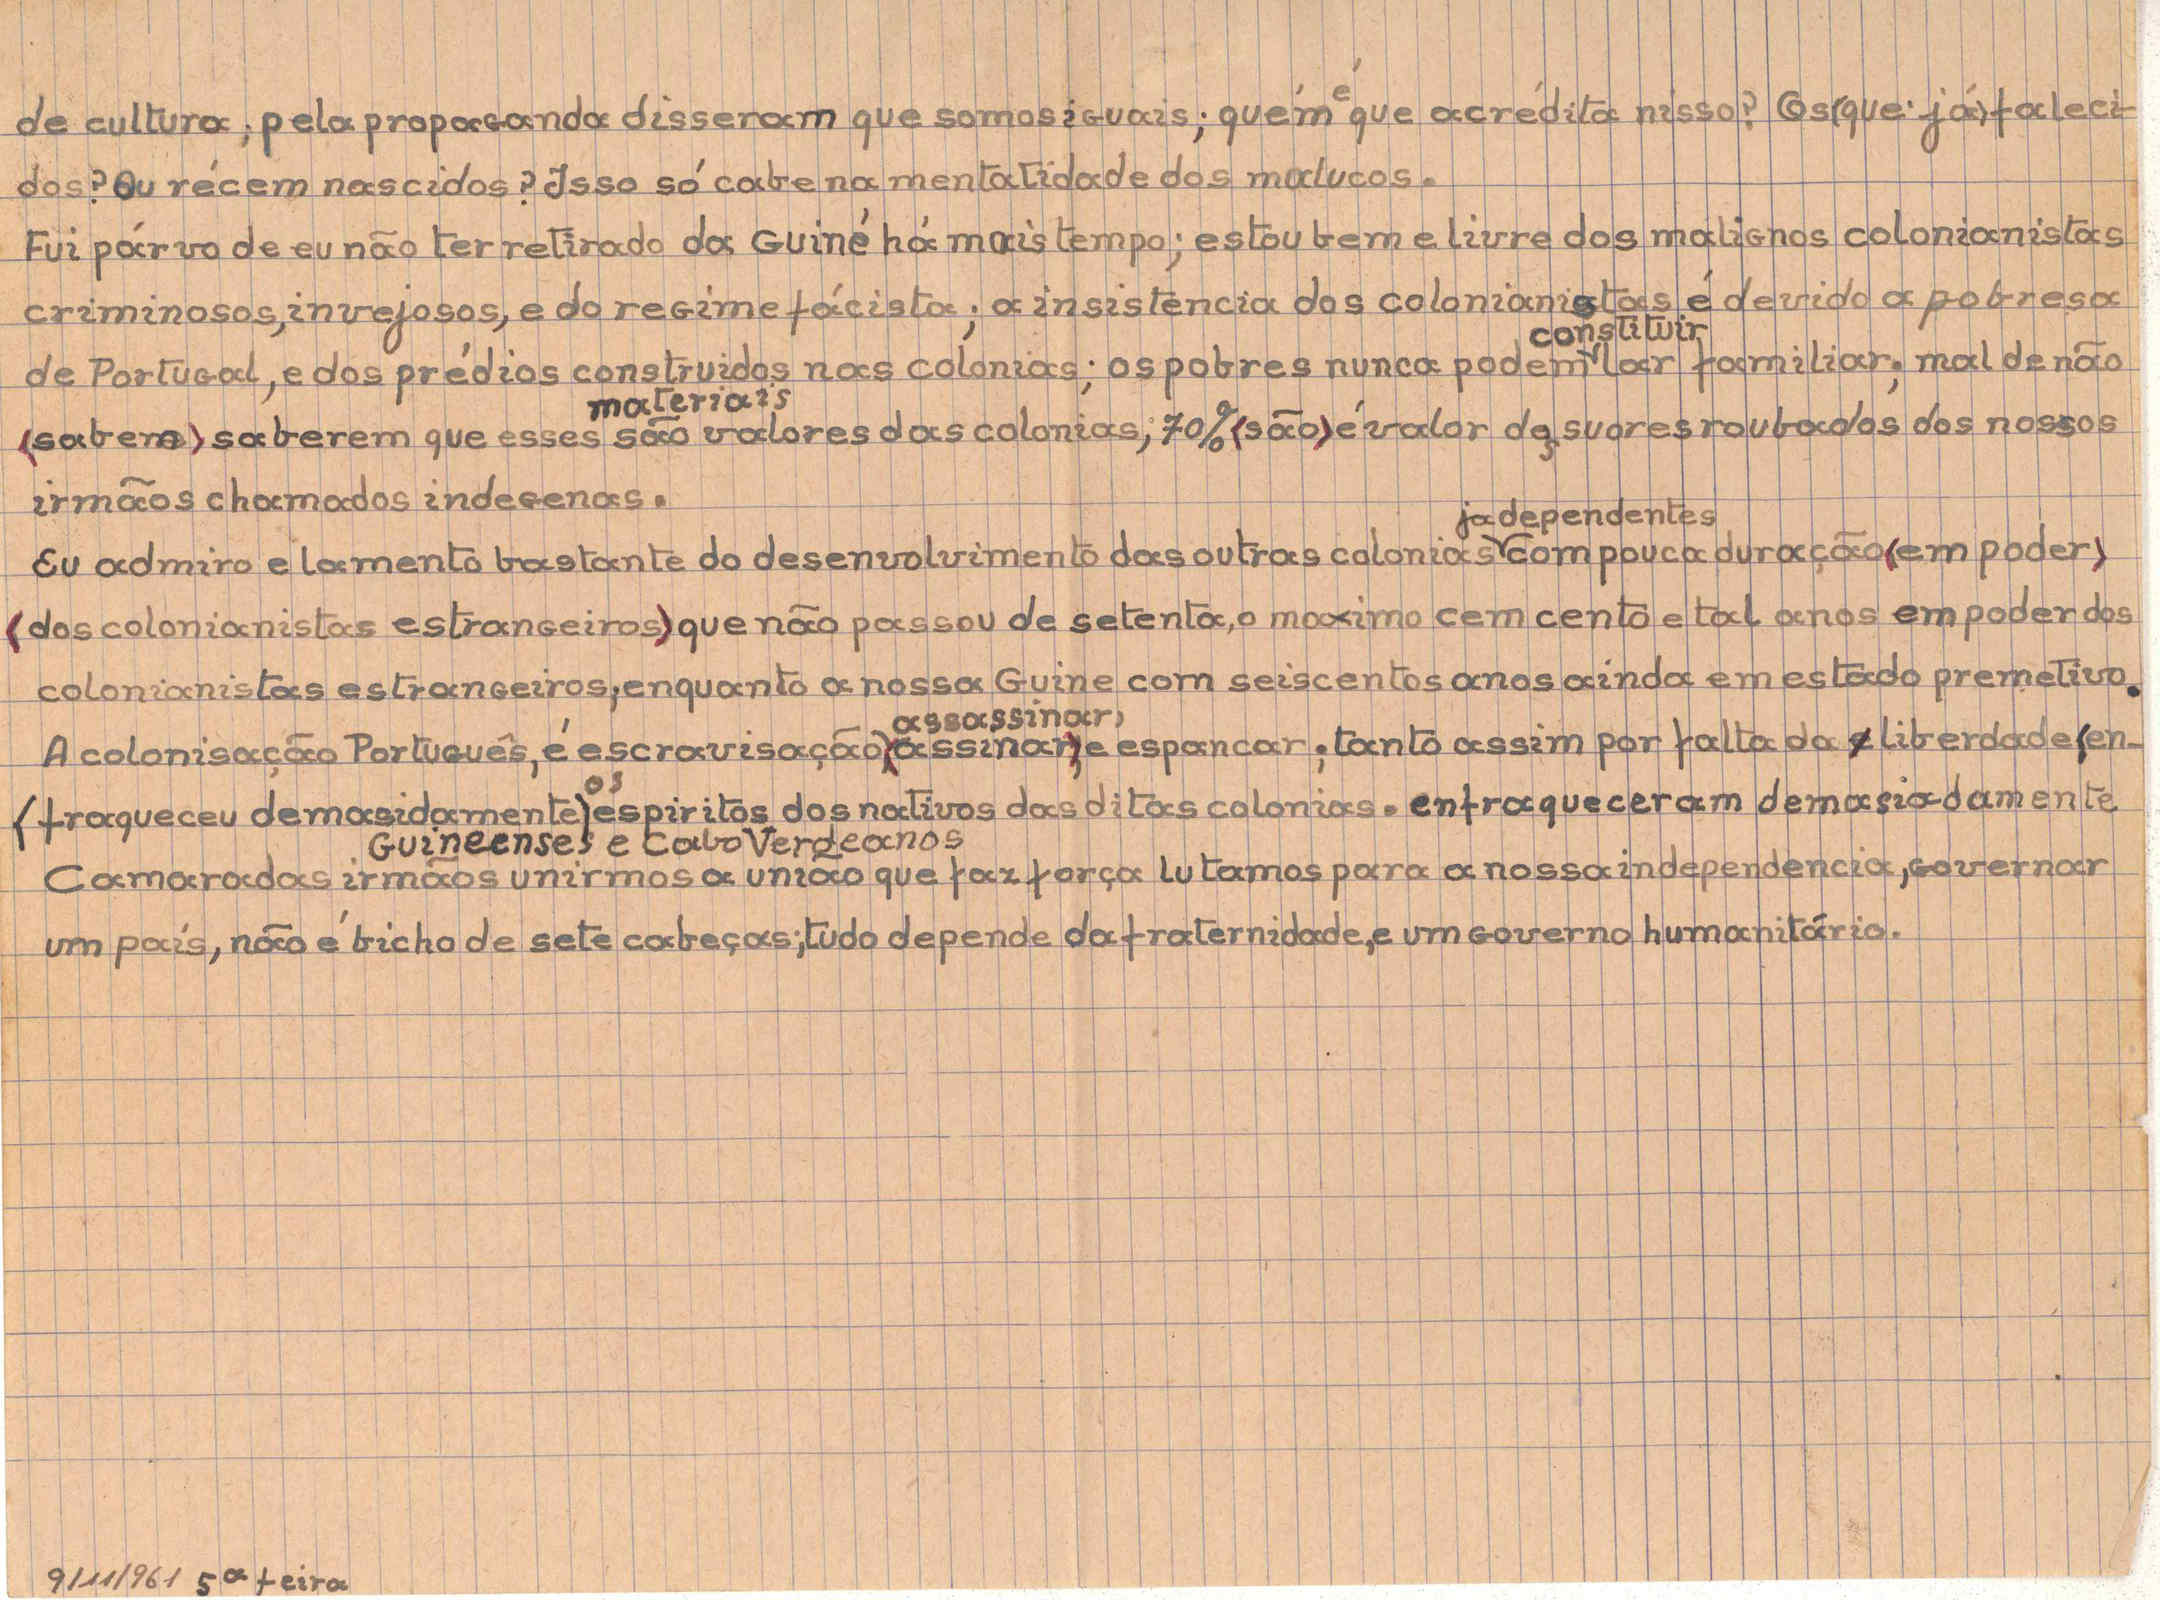 de cultura; pela propaganda disseram que somos iguais; quém é que acrédita nisso? Os (que já) faleci-
dos? Ou récem nascidos? Isso só cabe na mentalidade dos malucos.
Fui párvo de eu não ter retirado da Guiné há mais tempo; estou bem e livre dos malignos colonianistas
criminosos, invejosos, e do regime fácista; a insistência dos colonianistas é devido a pobresa
constituir
de Portugal, e dos prédios construidos nas colónias; os pobres nunca podem lar familiar; mal de não
materiais
(sabem) saberem que esses são valores das colonias; 70% (são) é valor dos suores roubados dos nossos
irmãos chamados indegenas.
já dependentes
Eu admiro e lamento bastante do desenvolvimento das outras colonias com pouca duração (em poder)
(dos colonianistas estrangeiros) que não passou de setenta, o maximo cem cento e tal anos em poder dos
colonianistas estrangeiros, enquanto a nossa Guine com seiscentos anos ainda em estado premetivo.
assassinar,
A colonisação Português, é escravisação, (assinar), e espancar; tanto assim por falta da liberdade (en-
os
(fraqueceu demasidamente) espiritos dos nativos das ditas colonias. enfraqueceram demasiadamente
Guineenses e Cabo Verdeanos
Camaradas irmãos unirmos a união que faz força lutamos para a nossa independencia, governar
um país, não é bicho de sete cabeças; tudo depende da fraternidade, e um governo humanitário.
9/11/961 5ª feira